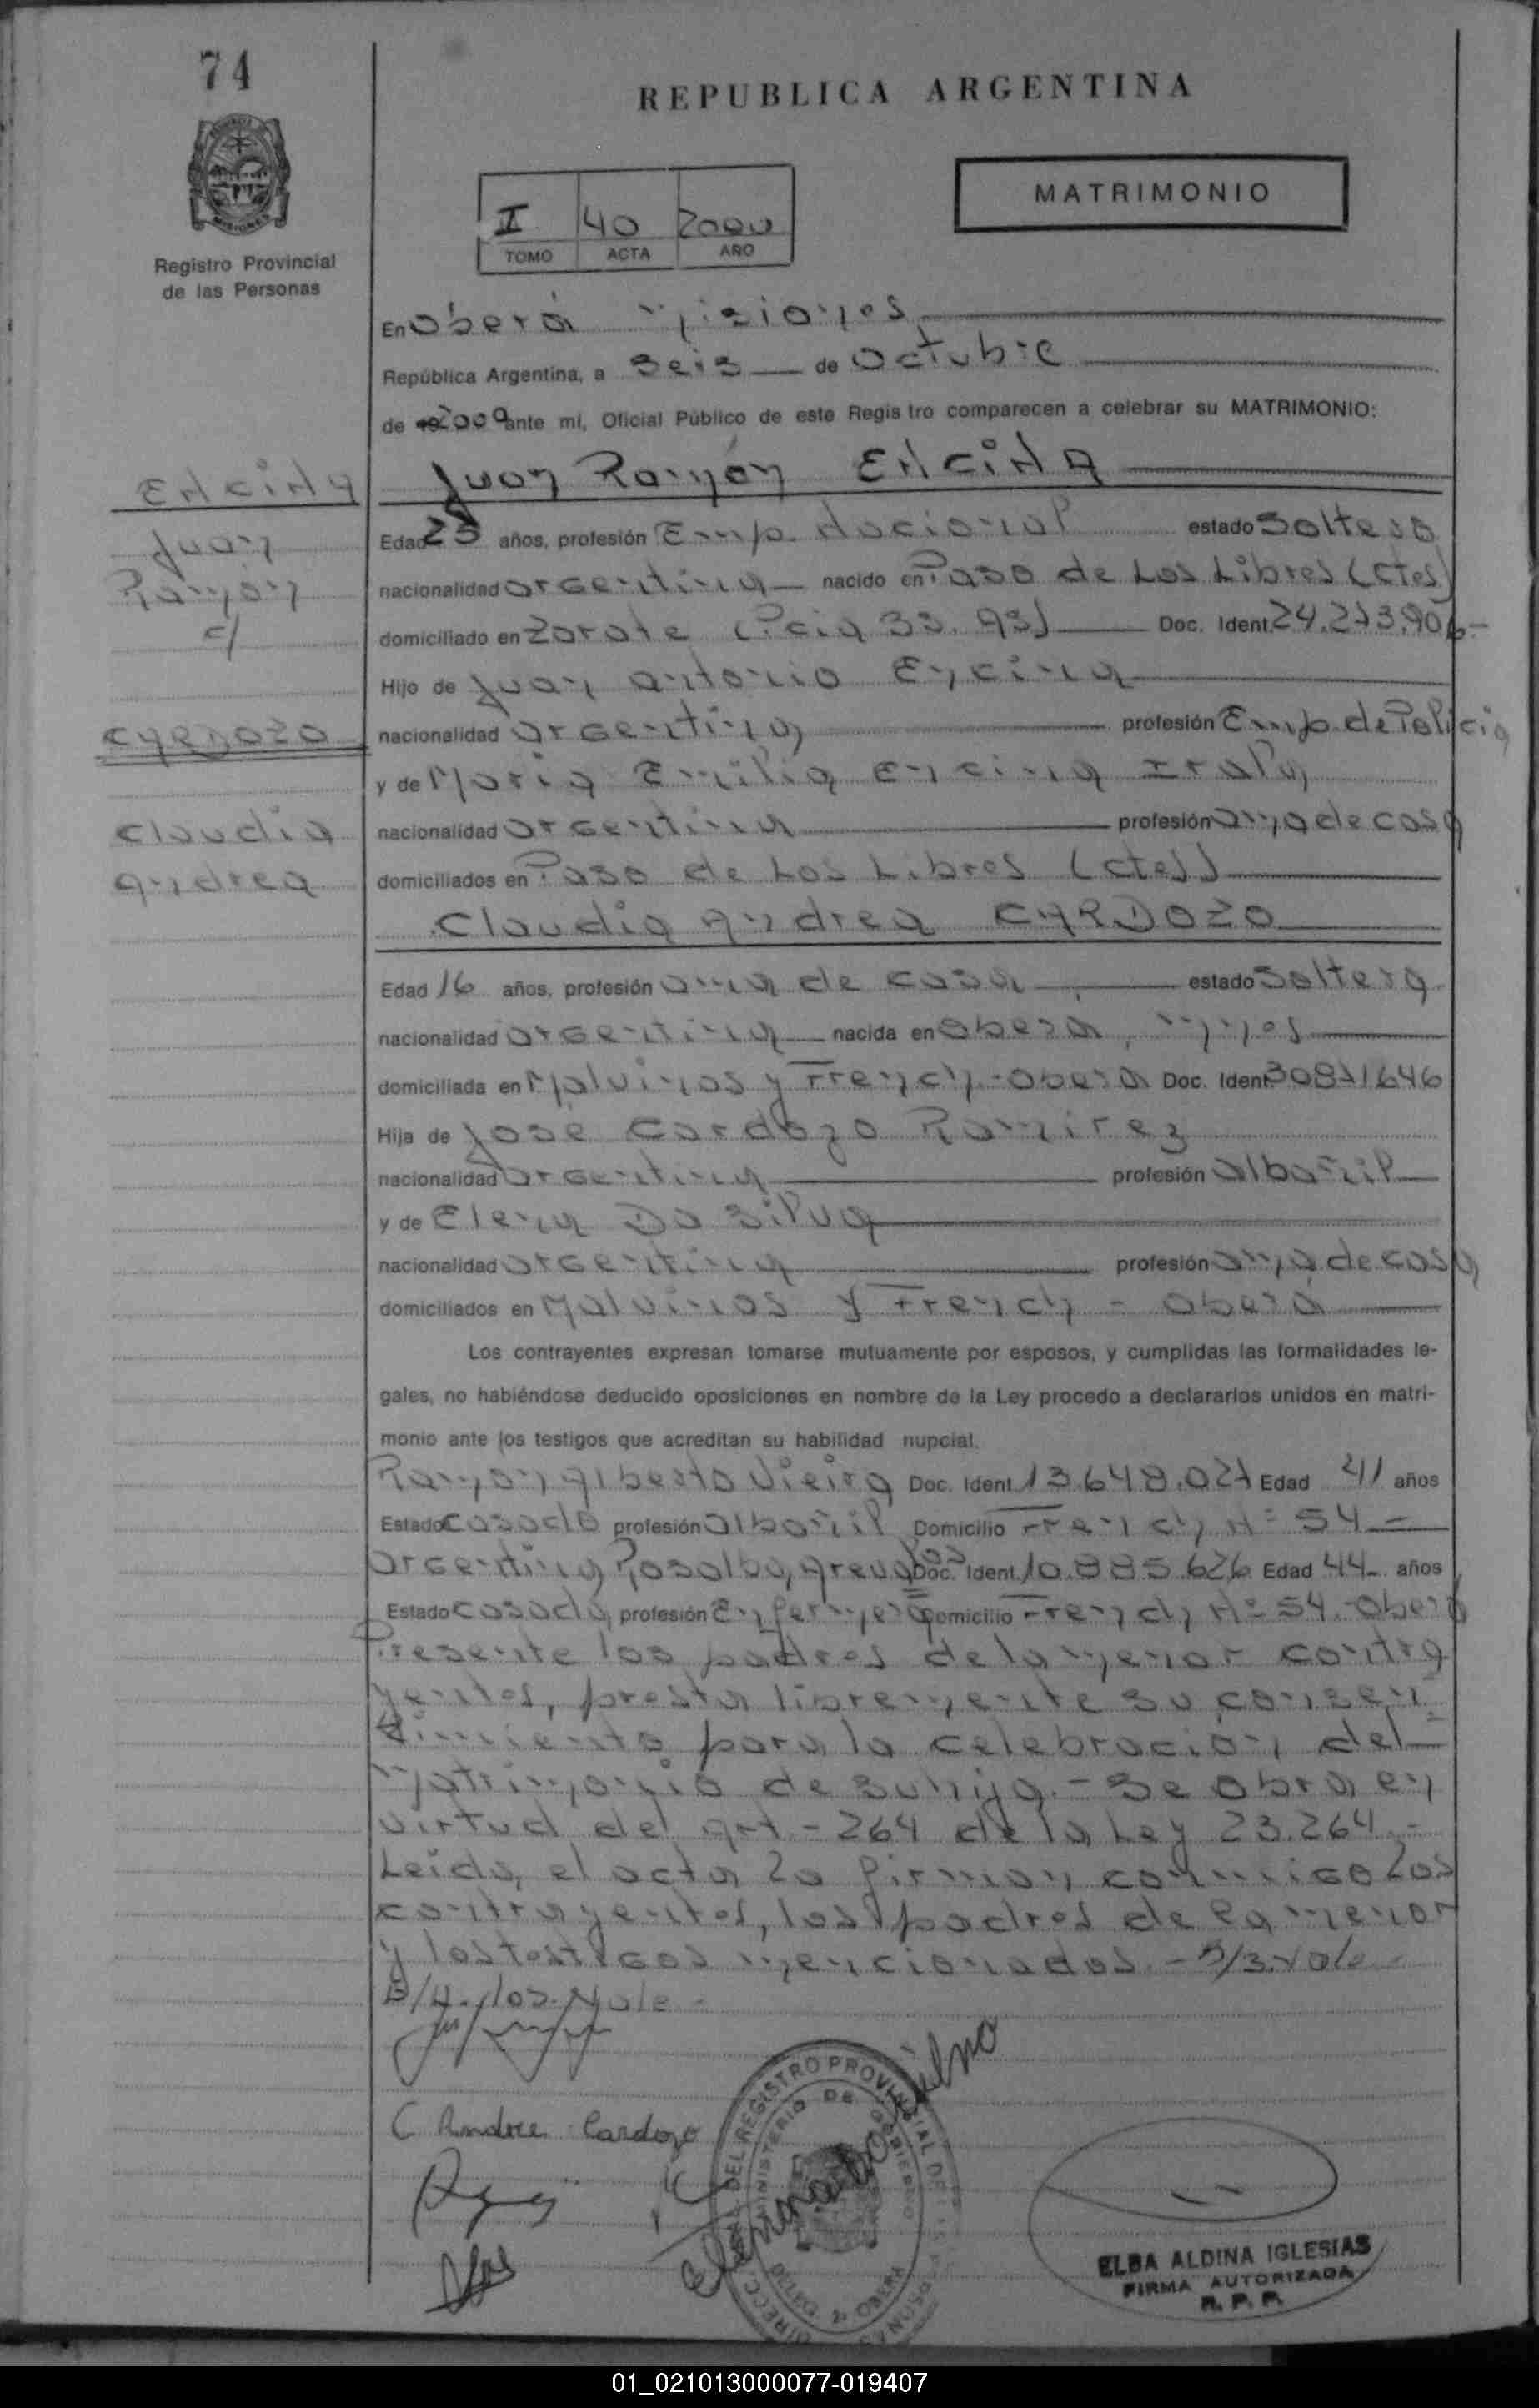 74
REPUBLICA ARGENTINA
MATRIMONIO
II 40 2000
TOMO ACTA AÑO
Registro Provincial
de las Personas
En Oberá Misiones
República Argentina, a seis de Octubre
de 2000 ante mí, Oficial Público de este Registro comparecen a celebrar su MATRIMONIO:
ENCINA
Juan
Ramón
c/
CARDOZO
Claudia
Andrea
Juan Ramón ENCINA
Edad 25 años, profesión Emp. Nacional estado Soltero
nacionalidad argentina nacido en Paso de Los Libres (Ctes)
domiciliado en Zarate (Pcia Bs. As) Doc. Ident. 24.273.906.-
Hijo de Juan Antonio Encina
nacionalidad argentina profesión Emp. de Policia
y de Maria Emilia Encina Irala
nacionalidad argentina profesión ama de casa
domiciliados en Paso de Los Libres (Ctes)
Claudia Andrea CARDOZO
Edad 16 años, profesión ama de casa estado Soltera
nacionalidad argentina nacida en Oberá, Mnes
domiciliada en Malvinas y French - Oberá Doc. Ident 30871646
Hija de José Cardozo Ramirez
nacionalidad argentina profesión albañil
y de Elena Da Silva
nacionalidad argentina profesión ama de casa
domiciliados en Malvinas y French - Oberá
Los contrayentes expresan tomarse mutuamente por esposos, y cumplidas las formalidades le-
gales, no habiéndose deducido oposiciones en nombre de la Ley procedo a declararlos unidos en matri-
monio ante los testigos que acreditan su habilidad nupcial.
Ramon Alberto Vieira Doc. Ident. 13.648.027 Edad 41 años
Estado casado profesión albañil Domicilio French N= 54 -
Argentina Rosalba Doc. Ident. 10.885.626 Edad 44 años
Estado casada, profesión Enfermera Domicilio French N= 54.- Oberá
Presente los padres de la menor contra
yentes, presta libremente su consen
timiento para la celebración del
matrimonio de su hija.- Se obra en
virtud del art - 264 de la Ley 23.264.-
Leida el acta la firman conmigo los
contrayentes, los padres de la menor
y los testigos mencionados. - S/3. vale -
E/H. los. Vale -
C Andre Cardozo
DIRECC. DEL REGISTRO PROVINCIAL DE LAS PERSONAS
MINISTERIO DE GOBIERNO
OBERA
ELBA ALDINA IGLESIAS
FIRMA AUTORIZADA
R. P. P.
01_021013000077-019407